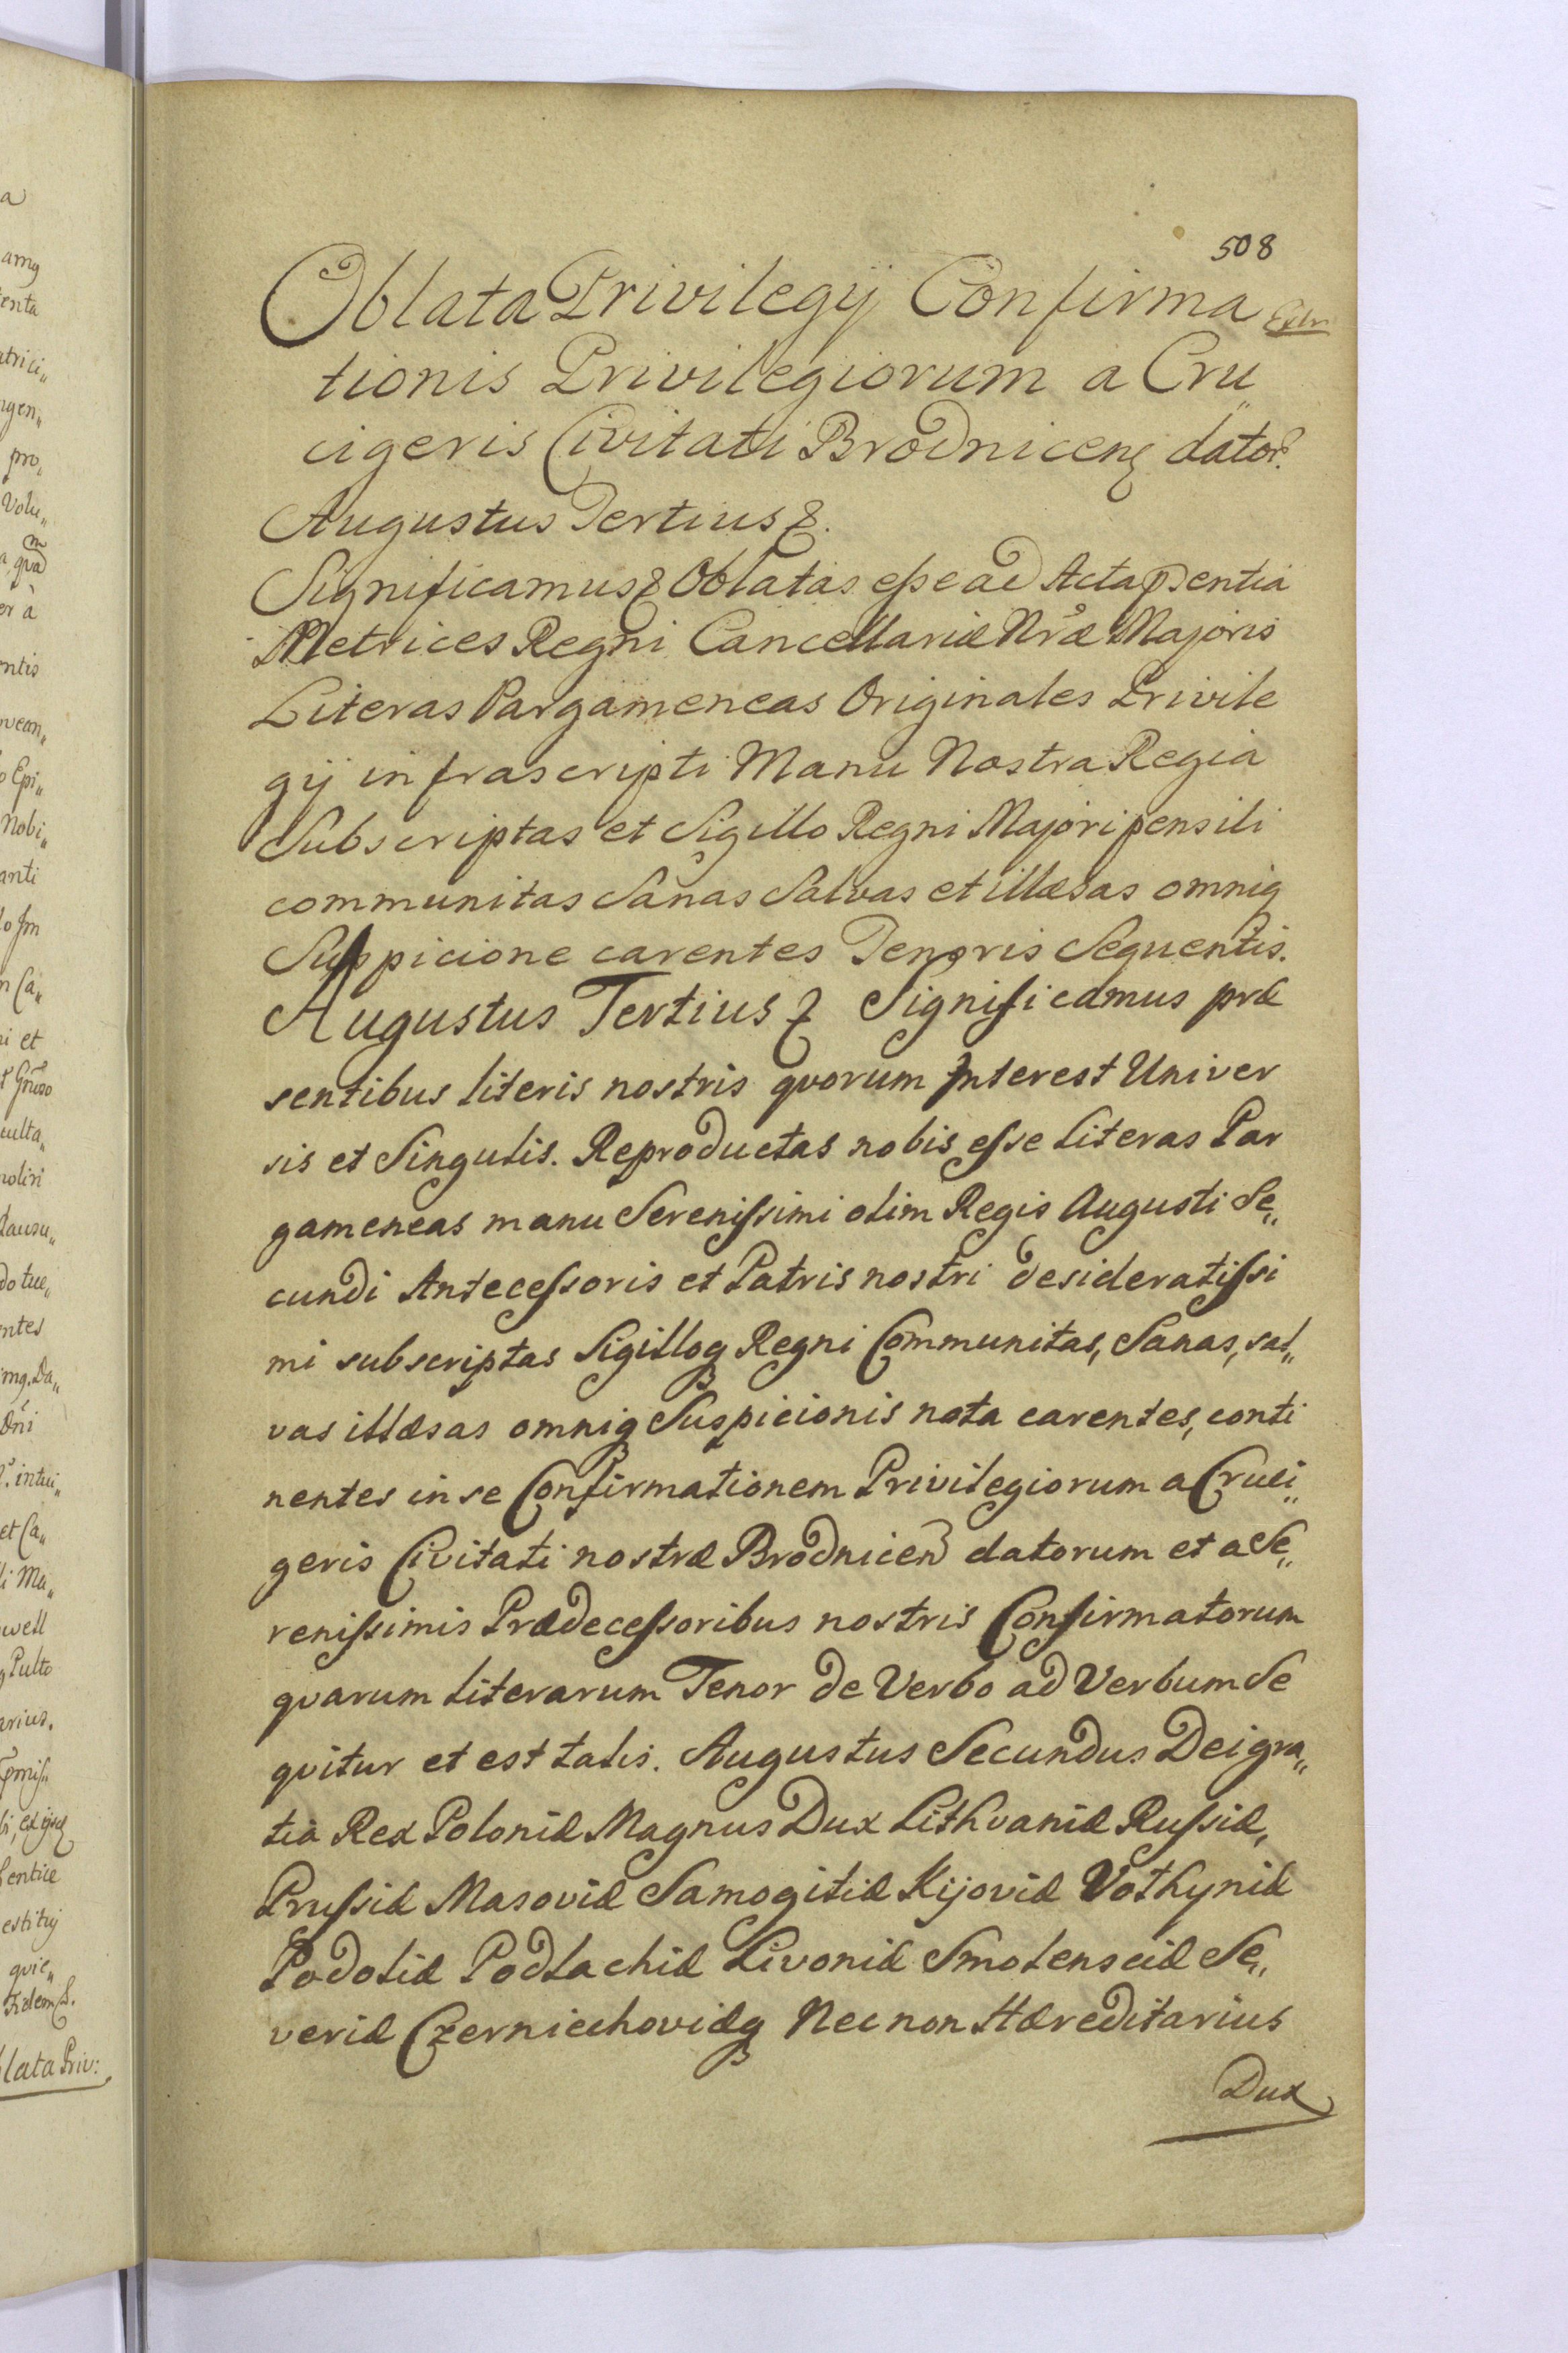 508
Oblata Privilegij Confirma
tionis Privilegiorum a Cru„
cigeris Civitati Brodnicenſ dator.
Augustus Tertius &.
Significamus & Oblatas eſse ad Acta pſentia
Metrices Regni Cancellariæ Nræ Majoris
Literas Pargameneas Originales Privile
gij infrascripti Manu Nostra Regia
Subscriptas et Sigillo Regni Majori pensili
communitas Sanas Salvas et illæsas omniq
Suspicione carentes Tenoris Sequentis.
Augustus Tertius & Significamus præ
sentibus literis nostris quorum Interest Univer
sis et Singulis. Reproductas nobis eſse Literas Par
gameneas manu Sereniſsimi olim Regis Augusti Se„
cundi Anteceſsoris et Patris nostri desideratiſsi
mi subscriptas Sigilloq Regni Communitas, Sanas, sal„
vas illæsas omniq Suspicionis nota carentes, conti
nentes in se Confirmationem Privilegiorum a Cruci„
geris Civitati nostræ Brodnicen datorum et a Se„
reniſsimis Prædeceſsoribus nostris Confirmatorum
quarum Literarum Tenor de Verbo ad Verbum Se
quitur et est talis. Augustus Secundus Dei gra„
tia Rex Poloniæ Magnus Dux Lithvaniæ Ruſsiæ,
Pruſsiæ Masoviæ Samogitiæ Kijoviæ Volhyniæ
Podoliæ Podlachiæ Livoniæ Smolensciæ Se„
veriæ Czerniechoviæq Nec non Hæreditarius
Dux